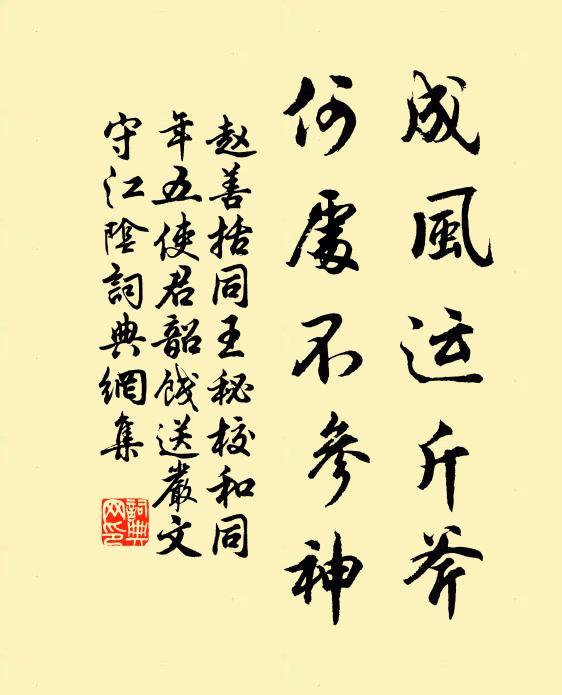 成風运斤斧
何處不參神
赵善括同王秘校和同
年五使君韶餞送嚴文
守江陰詞典網集
詞典网印